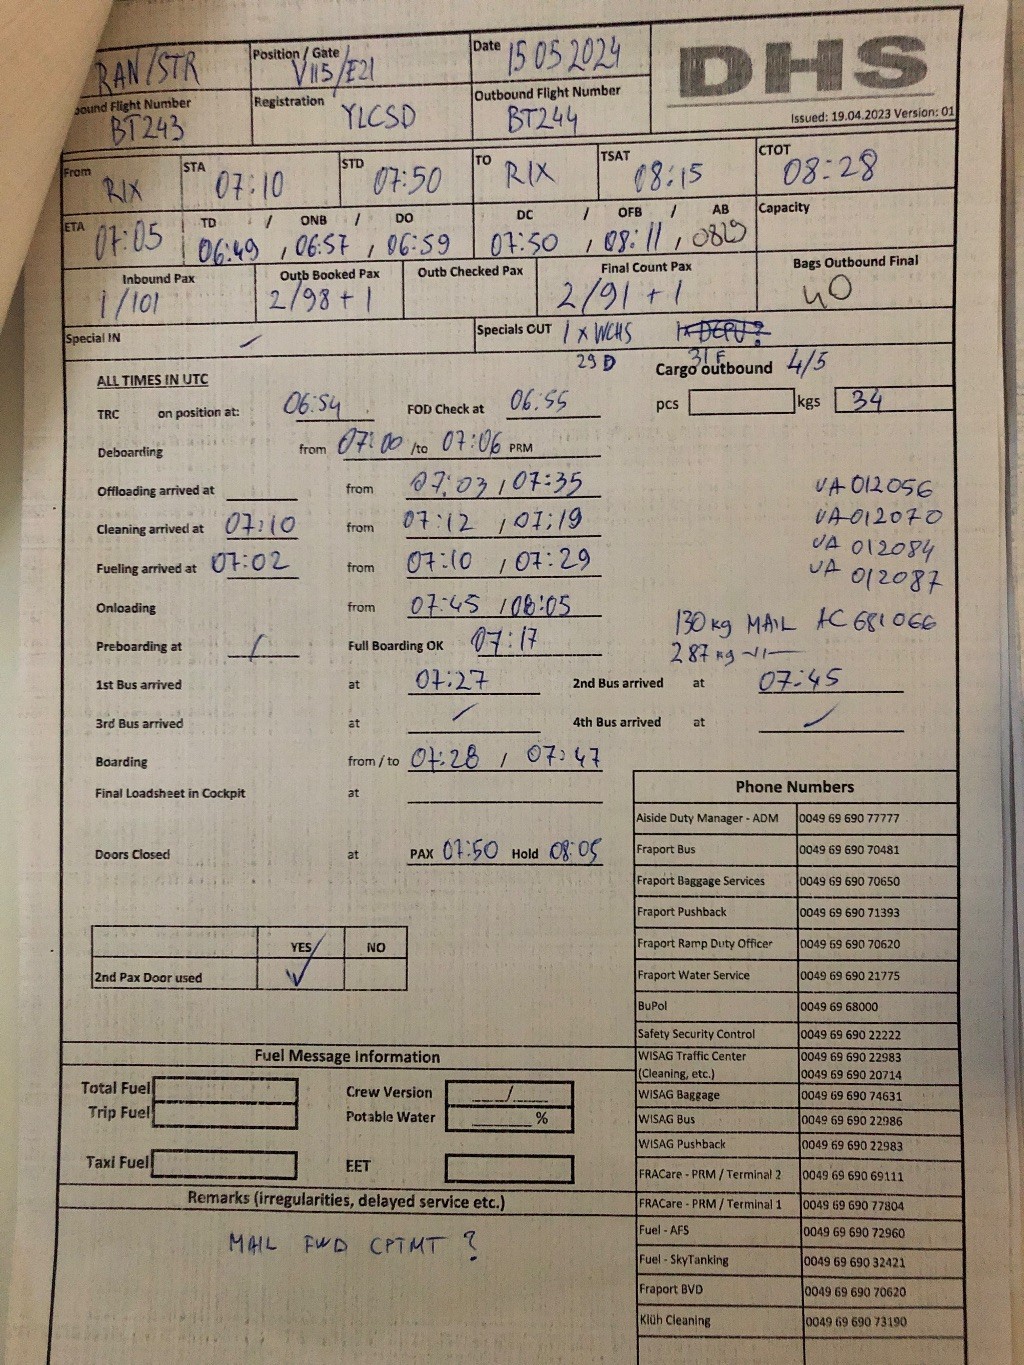 RAN/STR
Position / Gate
V115/E21
Date
15 05 2024
DHS
ound Flight Number
BT243
Registration
YLCSD
Outbound Flight Number
BT244
Issued: 19.04.2023 Version: 01
From
RIX
STA
07:10
STD
07:50
TO
RIX
TSAT
08:15
CTOT
08:28
ETA
07:05
TD / ONB / DO
06:49 , 06:57 , 06:59
DC / OFB / AB
07:50 , 08:11 , 0829
Capacity
Inbound Pax
1/101
Outb Booked Pax
2/98 + 1
Outb Checked Pax
Final Count Pax
2/91 + 1
Bags Outbound Final
40
Special IN
Specials OUT 1 x WCHS
29 D
31 F
ALL TIMES IN UTC
Cargo outbound 4/5
TRC on position at: 06:54 FOD Check at 06:55
pcs kgs 34
Deboarding from 07:00 /to 07:06 PRM
Offloading arrived at from 07:03 / 07:35
UA 012056
Cleaning arrived at 07:10 from 07:12 , 07:19
UA 012070
Fueling arrived at 07:02 from 07:10 , 07:29
UA 012084
UA 012087
Onloading from 07:45 / 08:05
130 kg MAIL AC 681066
Preboarding at / Full Boarding OK 07:17
287 kg -11-
1st Bus arrived at 07:27 2nd Bus arrived at 07:45
3rd Bus arrived at 4th Bus arrived at
Boarding from / to 07:28 / 07:47
Final Loadsheet in Cockpit at
Doors Closed at PAX 07:50 Hold 08:05
YES NO
2nd Pax Door used
Phone Numbers
Aiside Duty Manager - ADM 0049 69 690 77777
Fraport Bus 0049 69 690 70481
Fraport Baggage Services 0049 69 690 70650
Fraport Pushback 0049 69 690 71393
Fraport Ramp Duty Officer 0049 69 690 70620
Fraport Water Service 0049 69 690 21775
BuPol 0049 69 68000
Safety Security Control 0049 69 690 22222
WISAG Traffic Center 0049 69 690 22983
(Cleaning, etc.) 0049 69 690 20714
WISAG Baggage 0049 69 690 74631
WISAG Bus 0049 69 690 22986
WISAG Pushback 0049 69 690 22983
FRACare - PRM / Terminal 2 0049 69 690 69111
FRACare - PRM / Terminal 1 0049 69 690 77804
Fuel - AFS 0049 69 690 72960
Fuel - SkyTanking 0049 69 690 32421
Fraport BVD 0049 69 690 70620
Klüh Cleaning 0049 69 690 73190
Fuel Message Information
Total Fuel
Trip Fuel
Crew Version ___/___
Potable Water ______%
Taxi Fuel
EET
Remarks (irregularities, delayed service etc.)
MAIL FWD CPTMT ?